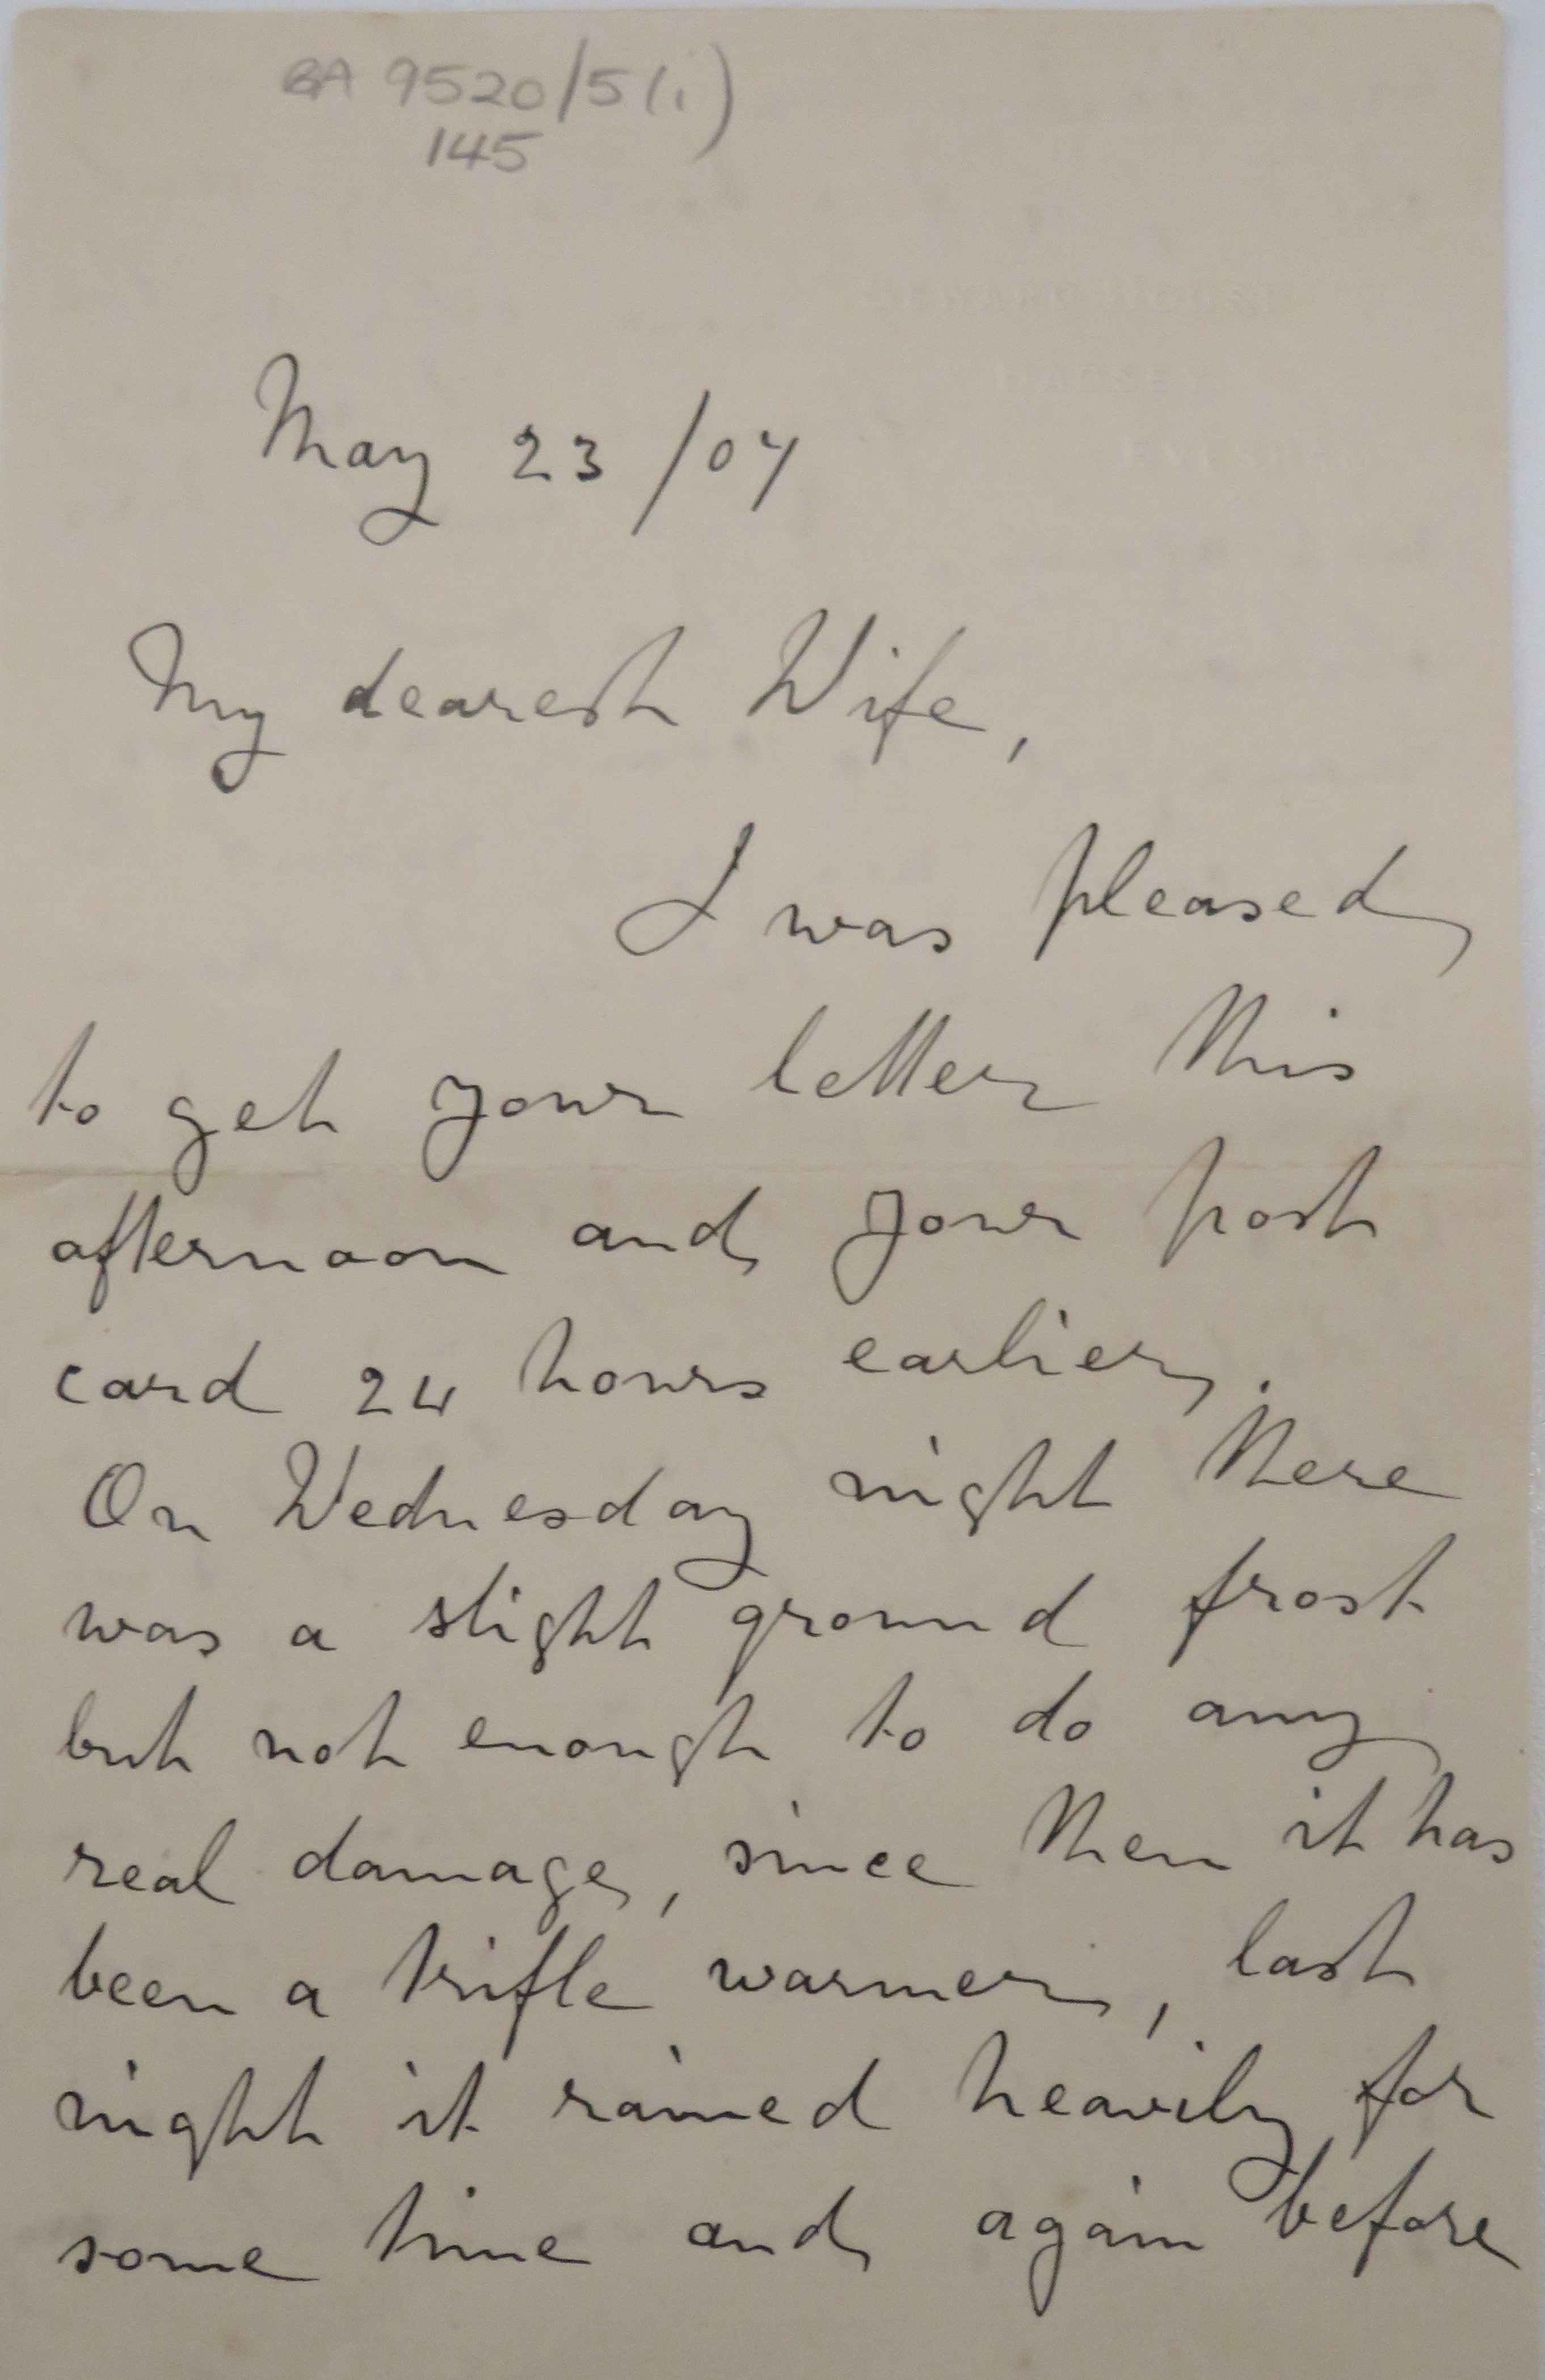 BA 9520/5(i)
145
May 23 /04
My dearest Wife,
I was pleased
to get your letter this
afternoon and your post
card 24 hours earlier.
On Wednesday night there
was a slight ground frost
but not enough to do any
real damage, since then it has
been a trifle warmer, last
night it rained heavily for
some time and again before